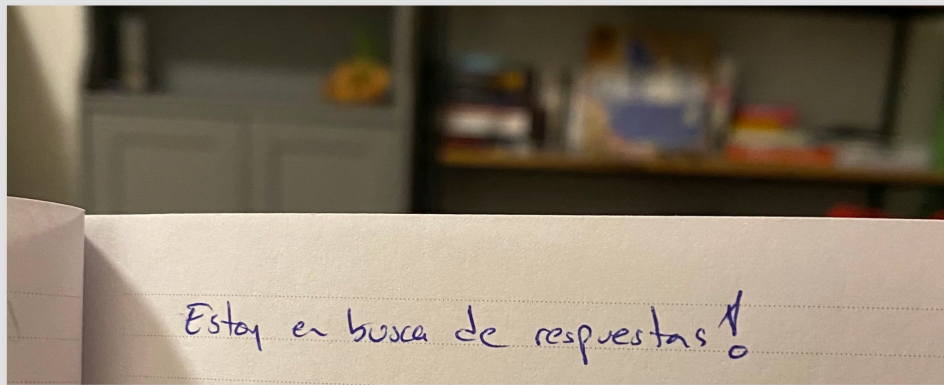 Estoy en busca de respuestas!